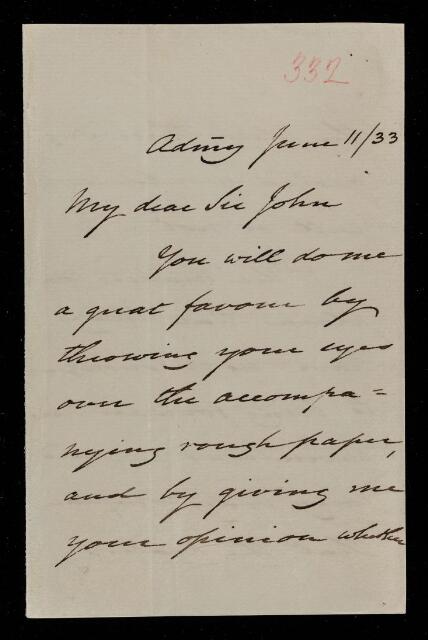 332
Admy June 11/33
My dear Sir John
You will do me
a great favour by
throwing your eyes
over the accompa=
nying rough paper,
and by giving me
your opinion whether